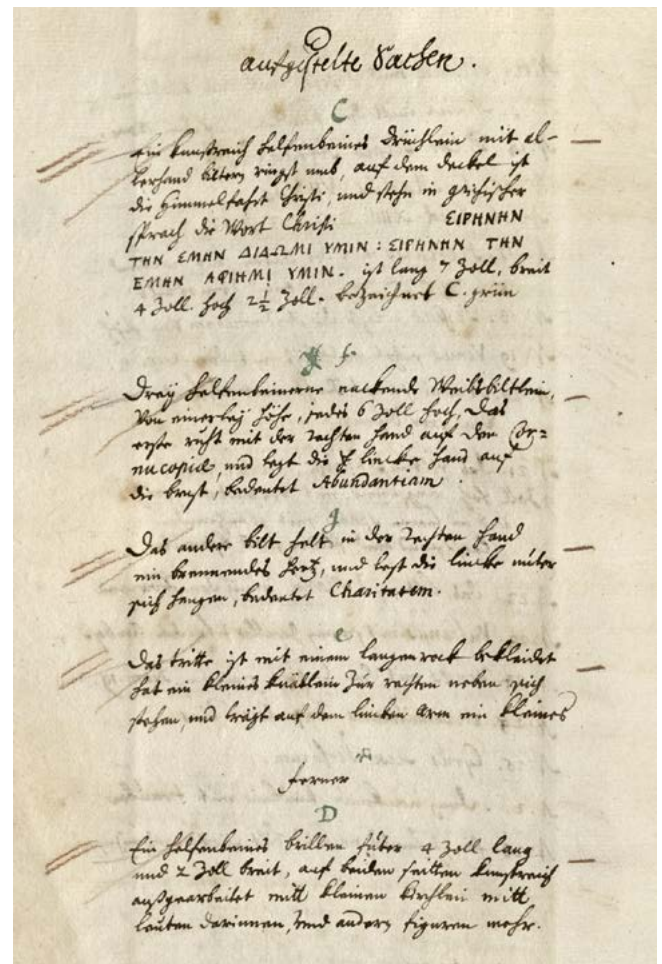 aufgestelte Sachen.
C
ein kunstreich helfenbeines Drüchlein mit al-
lerhand biltern ringst umb, auf dem deckel ist
die Himmelfahrt Christi, und stehn in grichischer
sprach die Wort Christi ΕΙΡΗΝΗΝ
ΤΗΝ ΕΜΗΝ ΔΙΔΩΜΙ ΥΜΙΝ : ΕΙΡΗΝΗΝ ΤΗΝ
ΕΜΗΝ ΑΦΙΗΜΙ ΥΜΙΝ. ist lang 7 Zoll, breit
4 Zoll. hoch 2½ Zoll. bezeichnet C. grün
f.
Drey helfenbeinerne nackende Weibsbiltlein,
von einerley höhe, jedes 6 Zoll hoch, Das
erste ruht mit der rechten hand auf dem Cor=
nucopiæ, und legt die lincke hand auf
die brust, bedeutet Abundantiam
g
Das andere bilt helt in der rechten hand
ein brennendes hertz, und lest die lincke unter
sich hangen, bedeutet Charitatem.
e
Das tritte ist mit einem langen rock bekleidet
hat ein kleines knäblein zur rechten neben sich
stehen, und trägt auf dem lincken arm ein kleines
ferner
D
Ein helfenbeines brillen futer 4 Zoll lang
und 2 Zoll breit, auf beiden seitten kunstreich
außgearbeitet mitt kleinen kirchlein mitt
leuten darinnen, und andern figuren mehr.